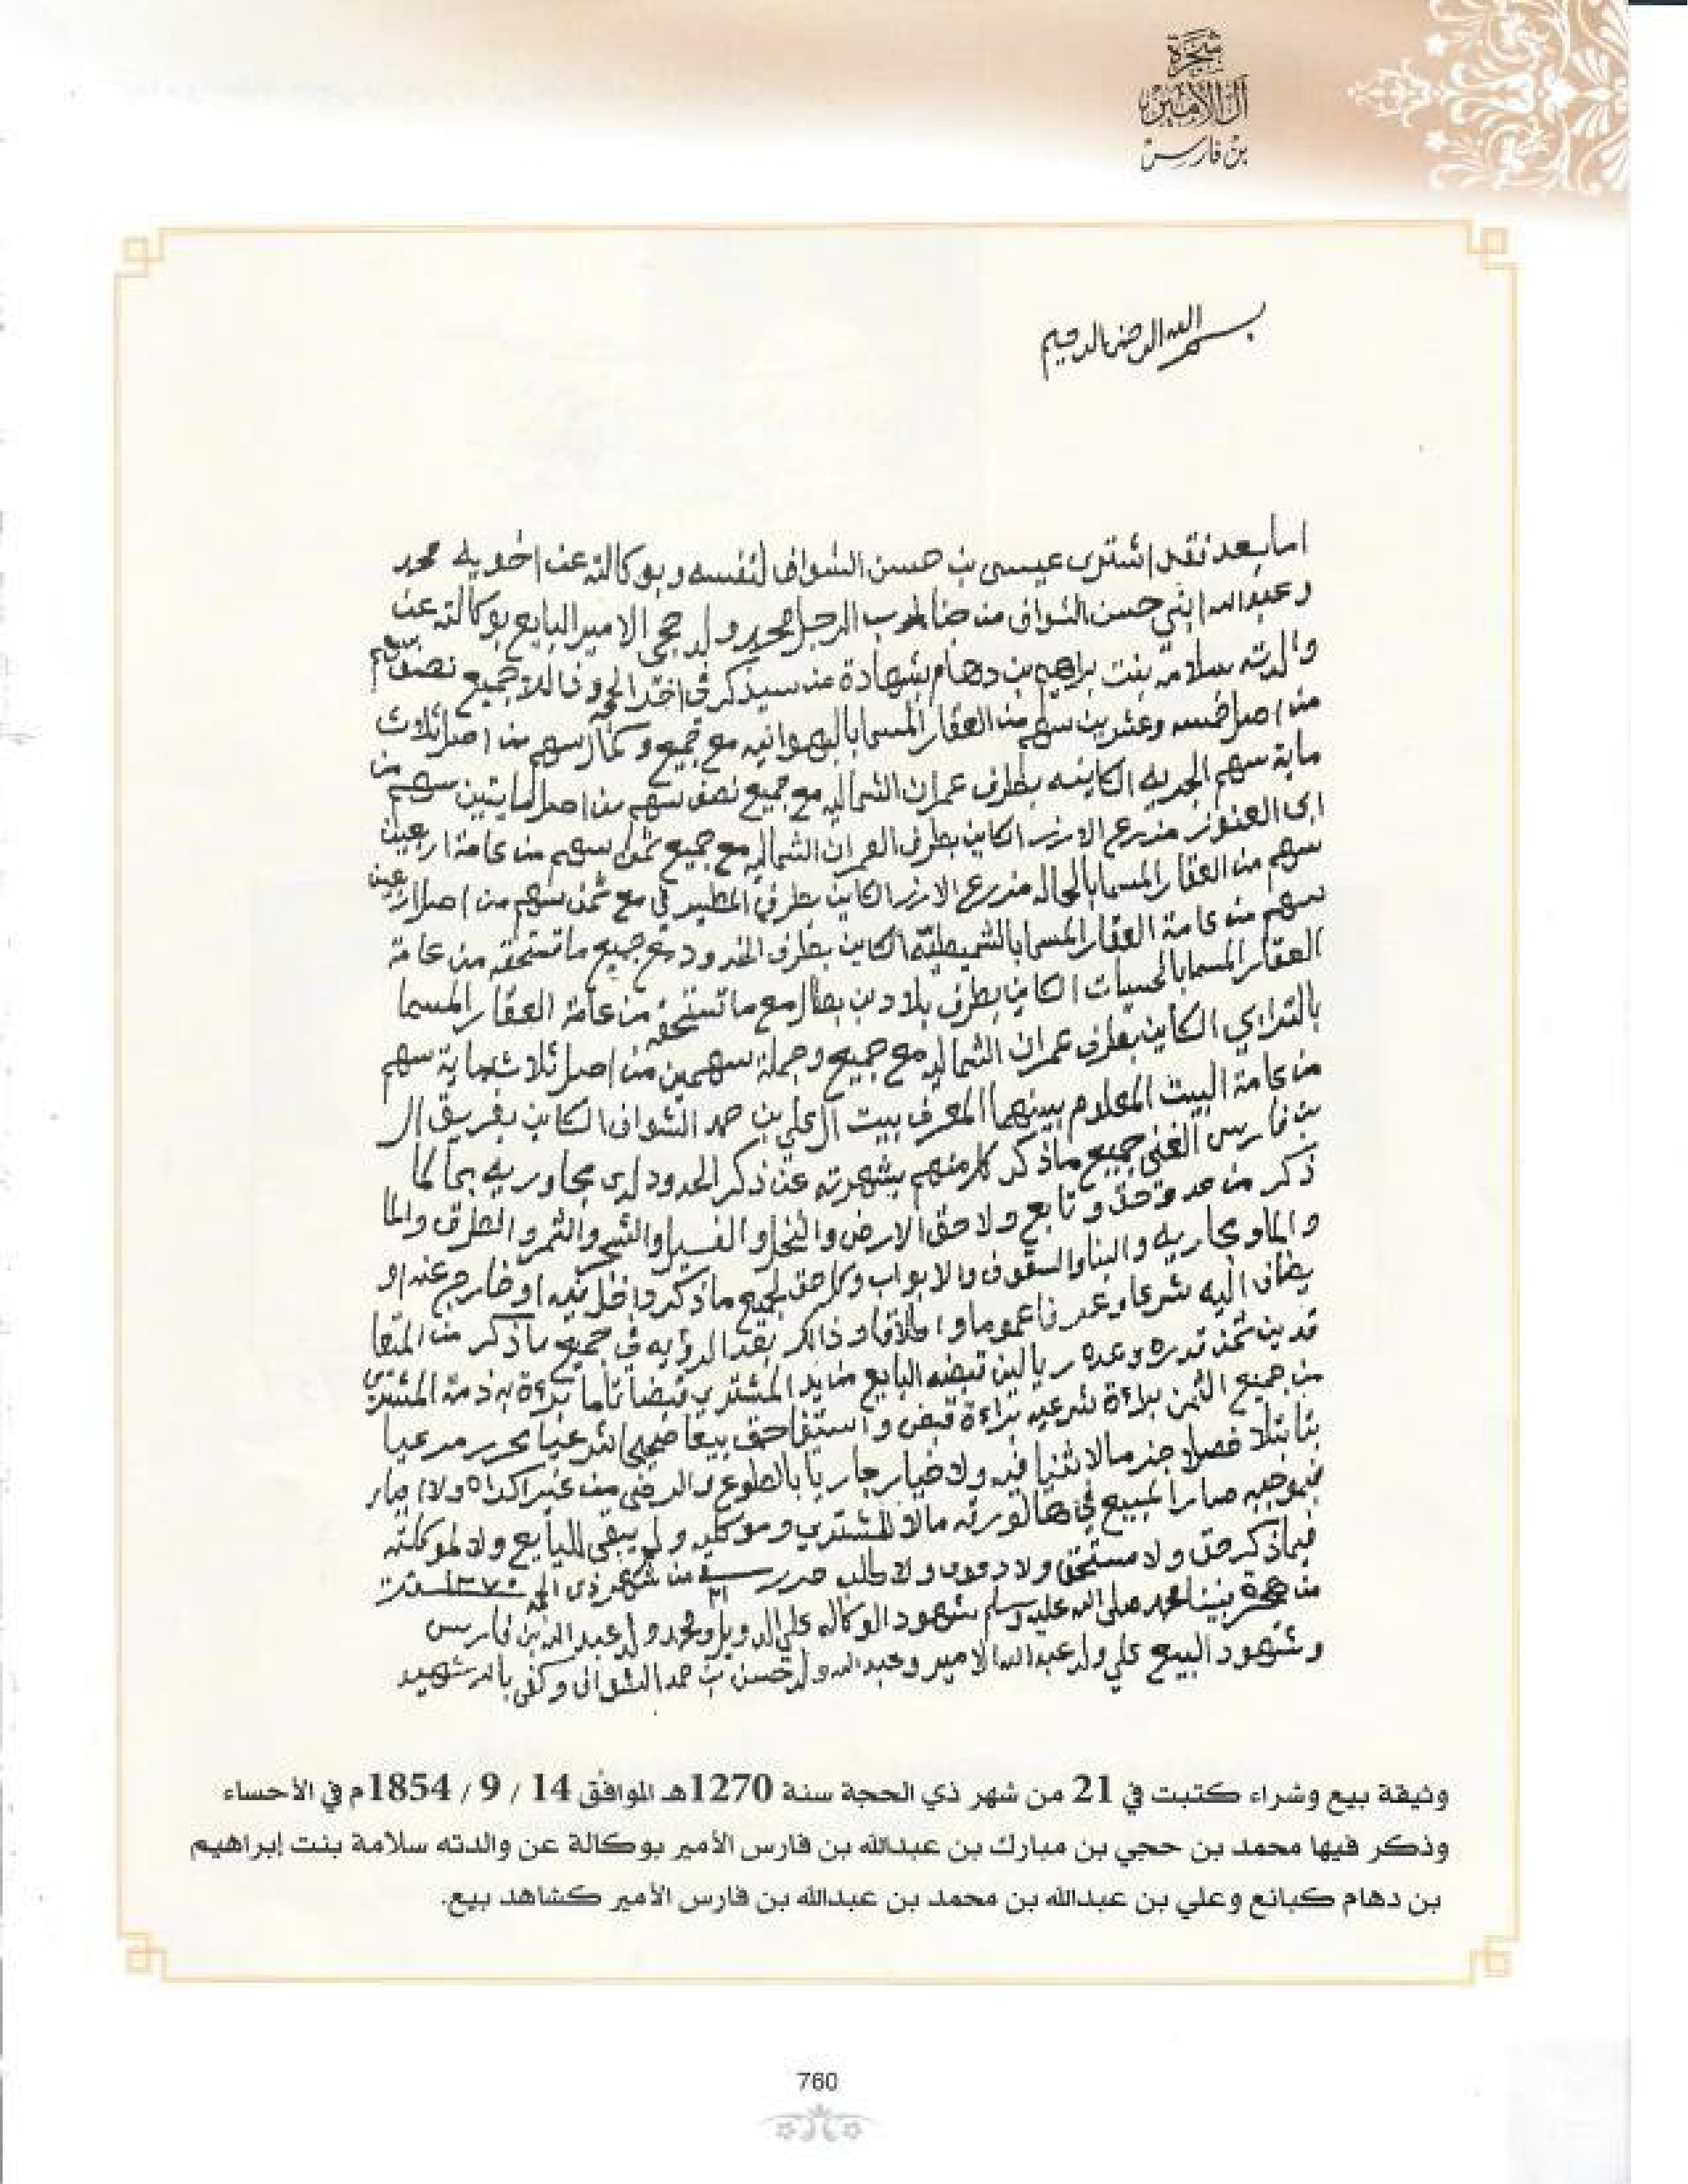 شجرة
آل الأمير
بن فارس
بسم الله الرحمن الرحيم
اما بعد فقد اشترى عيسى بن حسن الشواف لنفسه وبوكالته عن اخويه محمد
وعبدالله ابني حسن الشواف من الرجل محمد ولد حجي الامير البايع بوكالته عن
والدته سلامه بنت براهيم بن دهام بشهادة من سيذكر في اخر الحجه جميع نصف سهم
من اصل خمسه وعشرين سهم من العقار المسما مع جميع وكمال سهم من اصل ثلاث
ماية سهم الكاينه بطرف عمران الشماليه مع جميع نصف سهم من اصل مايتين سهم من
مزرع الارز الكاين بطرف العمران الشماليه مع جميع سهم من عامة اربعين
سهم من العقار المسما مزرع الارز الكاين بطرف المطيرفي مع ثمن سهم من اصل اربعين
سهم من عامة العقار المسما الكاين بطرف مع جميع ما تستحقه من عامة
العقار المسما الكاين بطرف بلاد بن بطال مع ما تستحقه من عامة العقار المسما
الكاين بطرف عمران الشماليه مع جميع وجملة سهمين من اصل ثلاث ماية سهم
من عامة البيت المعلوم بينهما المعرف بيت ال علي بن حمد الشواف الكاين بفريق ال
بن فارس الغني جميع ما ذكر كل منهم بشهرته عن ذكر الحدود لدى مجاوريه بما لما
ذكر من حد وحق وتابع ولاحق الارض والنخل والفسيل والشجر والثمر والطرق والما
والماومجاريه والبنا والسقوف والابواب وكل حق لجميع ما ذكر داخل فيه او خارج عنه او
يضاف اليه شرعا وعرفا عموما واطلاقا وذالك بعد الرؤيه في جميع ما ذكر من المتعا
قدين بثمن قدره وعده ريالين قبضه البايع من يد المشتري قبضا تاما برءة به ذمة المشتري
من جميع الثمن براءة شرعيه براءة قبض واستيفا حق بيعا صحيحا شرعيا محررا مرعيا
بتا بتلا فصلا جزما لا ثنيا فيه ولا خيار جاريا بالطوع والرضى من غير اكراه ولا اجبار
فبموجبه صار المبيع في مالا للمشتري وموكليه ولم يبقى للبايع ولا لموكلته
فيما ذكر حق ولا مستحق ولا دعوى ولا طلب حرر في ٢١ من شهر ذي الحجه ١٢٧٠ سنة
من هجرة نبينا محمد صلى الله عليه وسلم شهود الوكاله علي ومحمد ولد عبدالله بن فارس
وشهود البيع علي ولد عبدالله الامير وعبدالله ولد حسن بن حمد الشواف وكفى بالله شهيد
وثيقة بيع وشراء كتبت في 21 من شهر ذي الحجة سنة 1270هـ الموافق 14 / 9 / 1854م في الأحساء
وذكر فيها محمد بن حجي بن مبارك بن عبدالله بن فارس الأمير بوكالة عن والدته سلامة بنت إبراهيم
بن دهام كبائع وعلي بن عبدالله بن محمد بن عبدالله بن فارس الأمير كشاهد بيع.
760